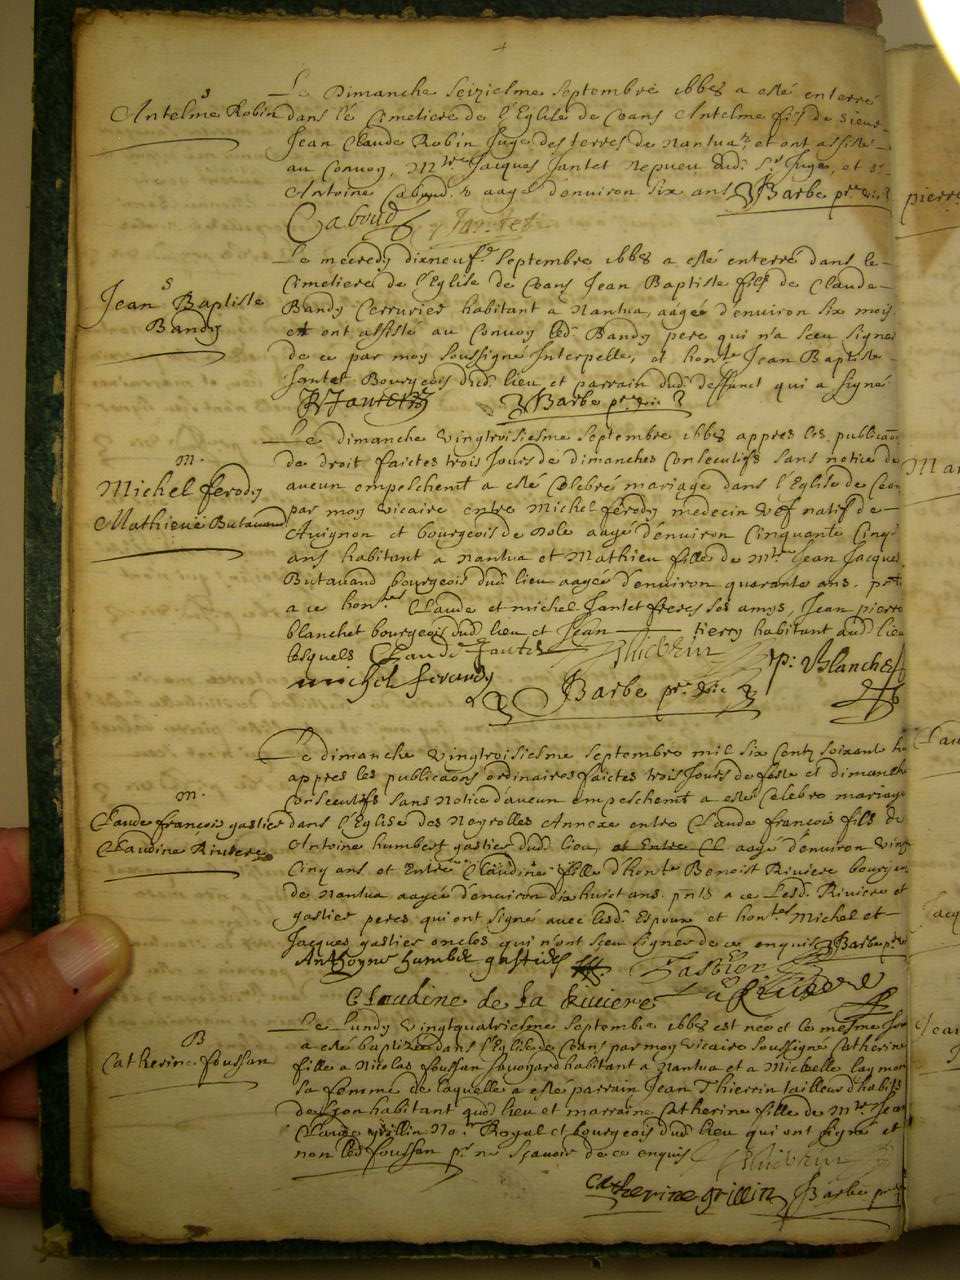 S
Antelme Robin
Le Dimanche seiziesme septembre 1668 a esté enterré
dans le Cimetiere de l'Eglise de Ceans Antelme fils de sieur
Jean Claude Robin Juge des terres de Nantua et ont assisté
au Convoy, Mtre Jacques Jantet Nepveu dud. Sr Juge, et Sr
Antoine Caboud aagé d'environ six ans Barbe pre vic
Caboud Jantet
S
Jean Baptiste
Bandy
Le mecredy dixneufe septembre 1668 a esté enterré dans le
Cimetiere de l'Eglise de Ceans Jean Baptiste fils de Claude
Bandy Serrurier habitant a Nantua, aagé d'environ six mois
et ont assisté au Convoy led. Bandy pere qui n'a sceu signer
de ce par moy soussigné Interpellé, et honte Jean Baptiste
Jantet Bourgeois dud. lieu, et parrain dud. deffunct qui a signé
Jantet Barbe pre vic
m.
Michel ferody
Mathieue Butavand
Le dimanche vingtroisiesme septembre 1668 appres les publicaons
de droit faictes trois Jours de dimanches Consecutifs sans notice de
aucun empeschemt a esté Celebré mariage dans l'Eglise de Ceans
par moy vicaire entre Michel ferody medecin natif de
Avignon et bourgeois de Dole aagé d'environ Cinquante Cinq
ans habitant a Nantua et Mathieu fille de Mtre Jean Jacques
Butavand bourgeois dud. lieu aagée d'environ quarante ans. pnts
a ce honles Claude et michel Jantet freres ses amys, Jean pierre
blanchet bourgeois dud. lieu et Jean tierry habitant aud. lieu
lesquels Claude Jantet P: Blanchet
michel ferandy Barbe pre vic
m.
Claude françois gastier
Claudine Riviere
Le dimanche vingtroisiesme septembre mil six Centz soixante h
appres les publicaons ordinaires faictes trois Jours de feste et dimanche
Consecutifs sans Notice d'aucun empeschemt a esté Celebré mariage
dans l'Eglise des Neyrolles Annexe entre Claude françois fils de
Antoine humbert gastier dud. lieu, aagé d'environ vingt
Cinq ans et Entre Claudine fille d'honte Benoist Riviere bourgeois
de Nantua aagée d'environ dixhuict ans. pnts a ce Lesd. Riviere et
gastier peres qui ont signé avec lesd. Espoux et honles Michel et
Jacques gastier oncles qui n'ont sceu signer de ce enquis Barbe pre
Anthoyne humbert gastier Gastier
Claudine de la Riviere La Riviere
B
Catherine foussan
Le Lundy vingtquatriesme septembre 1668 est née et le mesme Jour
a esté baptizée dans l'Eglise de Ceans par moy vicaire soussigné Catherine
fille a Nicolas foussan savoyard habitant a Nantua et a Michelle
sa femme de laquelle a esté parrain Jean Thierrin tailleur d'habits
de Lyon habitant aud. lieu et marraine Catherine fille de Mtre Jean
Claude grillin Nore Royal et bourgeois dud. lieu qui ont signé et
non led. foussan pr ne sçavoir de ce enquis
Catherine grillin Barbe pre